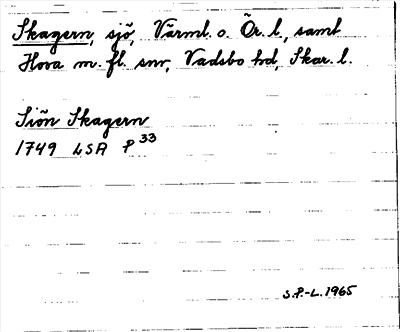 Skagern, sjö, Värml. o. Ör. l., samt
Hova m. fl. snr, Vadsbo hd, Skar. l.
Siön Skagern
1749 LSA P 33
S.P.-L. 1965